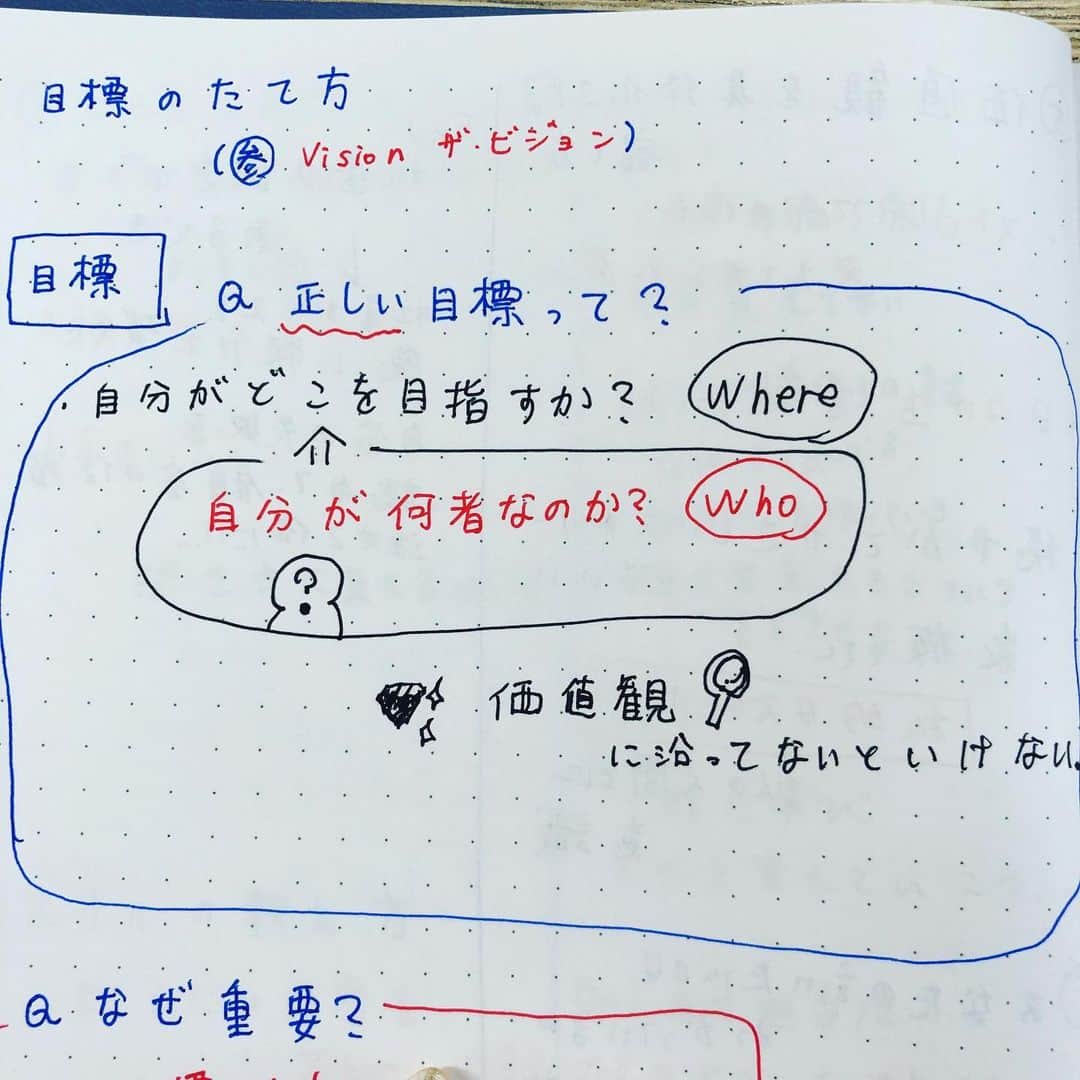 目標のたて方
(参 Vision ザ・ビジョン)
目標
Q 正しい目標って?
・自分がどこを目指すか? Where
自分が何者なのか? Who
?
価値観
に沿ってないといけない。
Q なぜ重要?